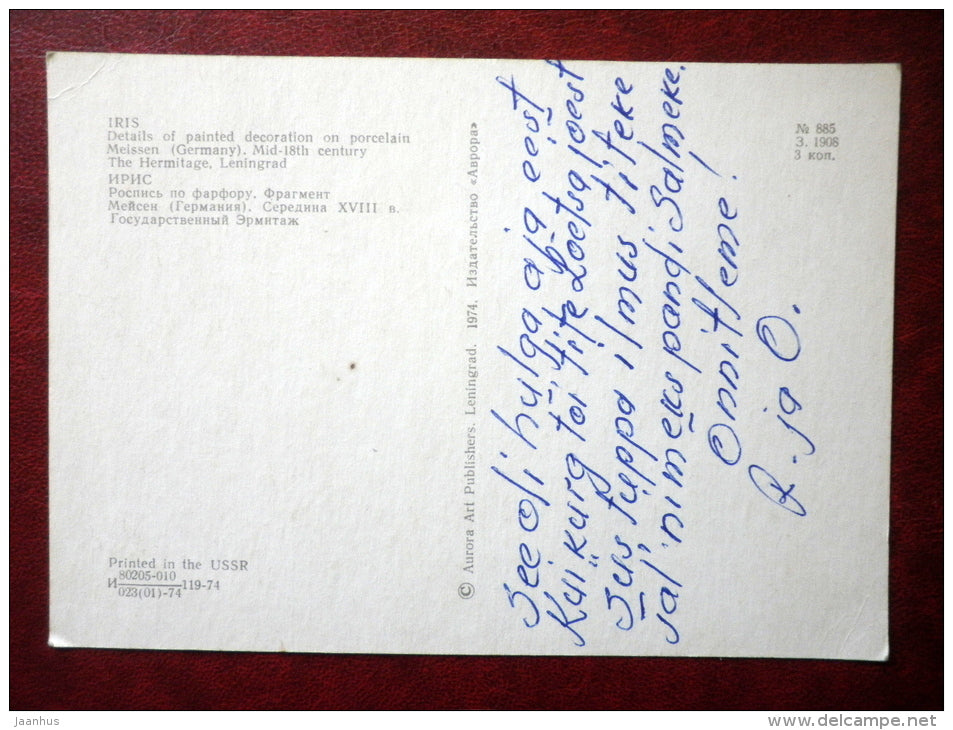 IRIS
Details of painted decoration on porcelain
Meissen (Germany). Mid-18th century
The Hermitage, Leningrad
ИРИС
Роспись по фарфору. Фрагмент
Мейсен (Германия). Середина XVIII в.
Государственный Эрмитаж
Printed in the USSR
И 80205-010 119-74
023(01)-74
© Aurora Art Publishers. Leningrad. 1974. Издательство «Аврора»
№ 885
З. 1908
3 коп.
See oli hulga aja eest
Kui kurg tõi tite Loetsa jõest
Siis tuppa ilmus titeke
sal' nimeks pandi Salmeke.
Õnnitleme!
R. ja O.
jaanhus
www.delcampe.net